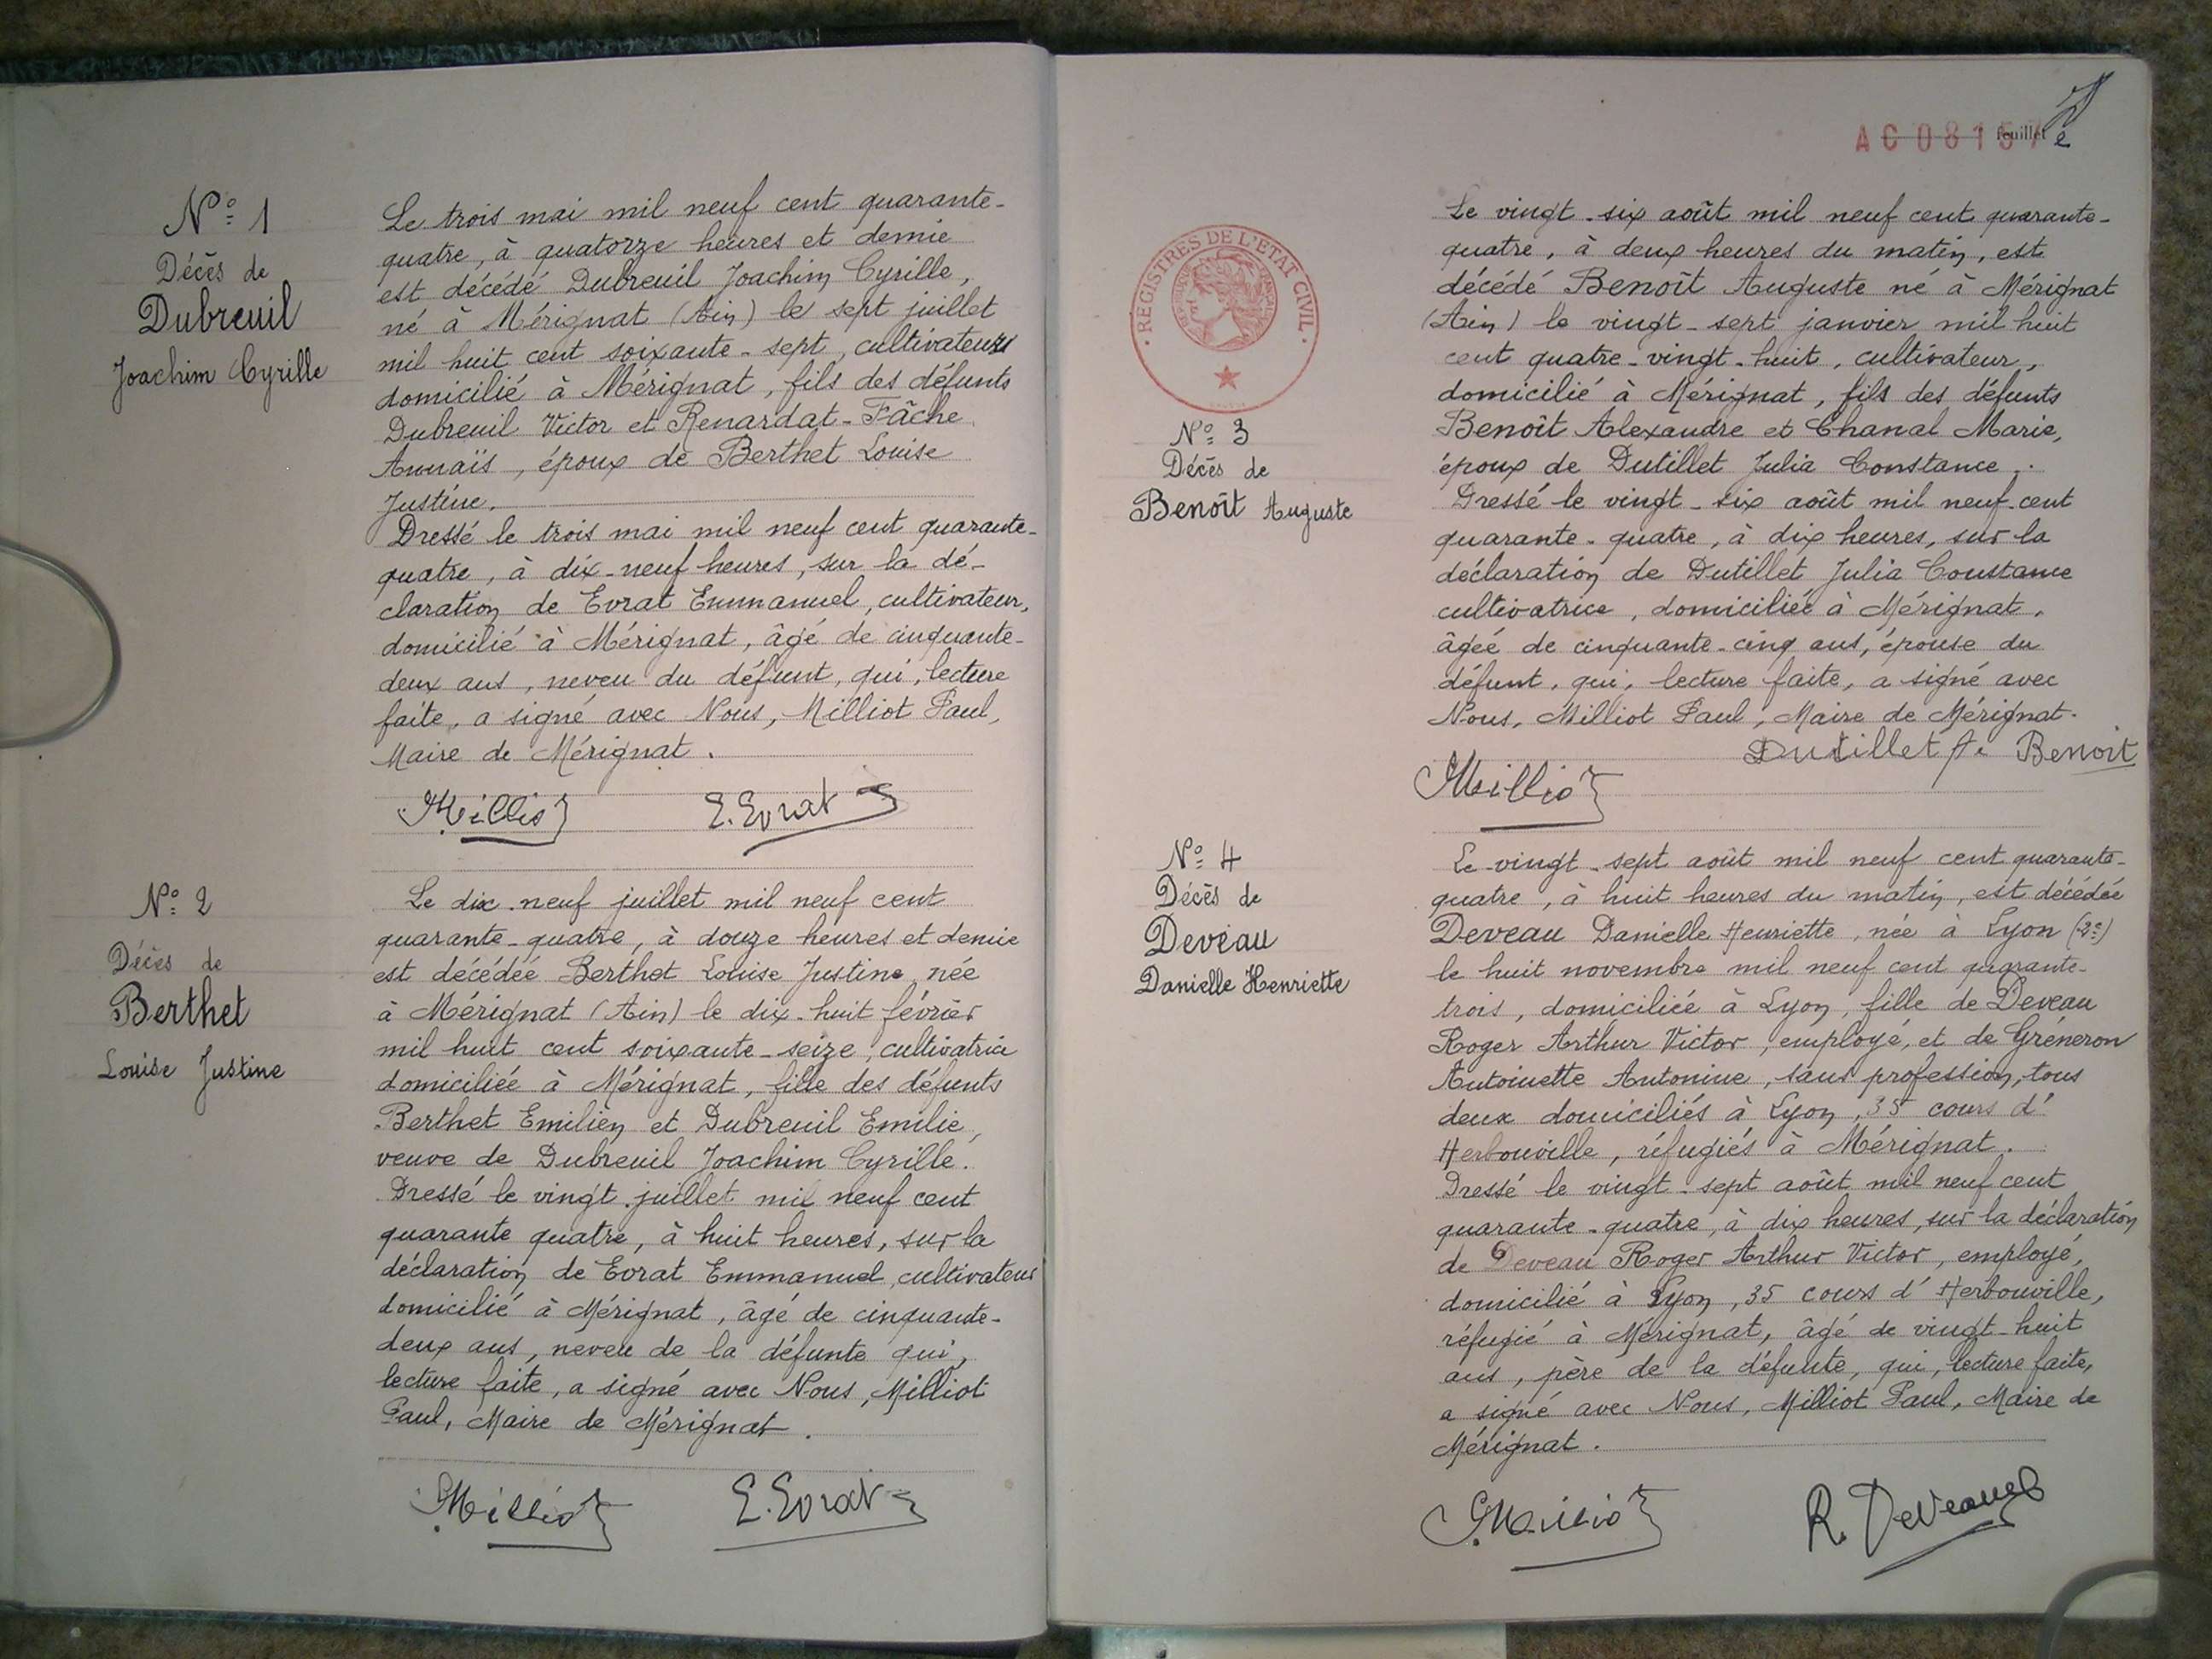 N° 1
Décès de
Dubreuil
Joachim Cyrille
Le trois mai mil neuf cent quarante-
quatre, à quatorze heures et demie
est décédé Dubreuil Joachim Cyrille,
né à Mérignat (Ain) le sept juillet
mil huit cent soixante-sept, cultivateur
domicilié à Mérignat, fils des défunts
Dubreuil Victor et Renardat-Fâche
Annaïs, époux de Berthet Louise
Justine.
Dressé le trois mai mil neuf cent quarante-
quatre, à dix-neuf heures, sur la dé-
claration de Evrat Emmanuel, cultivateur,
domicilié à Mérignat, âgé de cinquante-
deux ans, neveu du défunt, qui, lecture
faite, a signé avec Nous, Milliot Paul,
Maire de Mérignat.
Milliot E. Evrat
N° 2
Décès de
Berthet
Louise Justine
Le dix-neuf juillet mil neuf cent
quarante-quatre, à douze heures et demie
est décédée Berthet Louise Justine née
à Mérignat (Ain) le dix-huit février
mil huit cent soixante-seize, cultivatrice
domiciliée à Mérignat, fille des défunts
Berthet Emilien et Dubreuil Emilie,
veuve de Dubreuil Joachim Cyrille.
Dressé le vingt juillet mil neuf cent
quarante quatre, à huit heures, sur la
déclaration de Evrat Emmanuel, cultivateur
domicilié à Mérignat, âgé de cinquante-
deux ans, neveu de la défunte qui,
lecture faite, a signé avec Nous, Milliot
Paul, Maire de Mérignat.
Milliot E. Evrat
AC 08157 feuillet
REGISTRES DE L'ETAT CIVIL
N° 3
Décès de
Benoît Auguste
Le vingt-six août mil neuf cent quarante-
quatre, à deux heures du matin, est
décédé Benoît Auguste né à Mérignat
(Ain) le vingt-sept janvier mil huit
cent quatre-vingt-huit, cultivateur,
domicilié à Mérignat, fils des défunts
Benoît Alexandre et Chanal Marie,
époux de Dutillet Julia Constance.
Dressé le vingt-six août mil neuf cent
quarante-quatre, à dix heures, sur la
déclaration de Dutillet Julia Constance
cultivatrice, domiciliée à Mérignat,
âgée de cinquante-cinq ans, épouse du
défunt, qui, lecture faite, a signé avec
Nous, Milliot Paul, Maire de Mérignat.
Dutillet fe Benoit
Milliot
N° 4
Décès de
Deveau
Danielle Henriette
Le vingt-sept août mil neuf cent quarante-
quatre, à huit heures du matin, est décédée
Deveau Danielle Henriette, née à Lyon (2e)
le huit novembre mil neuf cent quarante-
trois, domiciliée à Lyon, fille de Deveau
Roger Arthur Victor, employé, et de Gréneron
Antoinette Antonine, sans profession, tous
deux domiciliés à Lyon, 35 cours d'
Herbouville, réfugiés à Mérignat.
Dressé le vingt-sept août mil neuf cent
quarante-quatre, à dix heures, sur la déclaration
de Deveau Roger Arthur Victor, employé,
domicilié à Lyon, 35 cours d'Herbouville,
réfugié à Mérignat, âgé de vingt-huit
ans, père de la défunte, qui, lecture faite,
a signé avec Nous, Milliot Paul, Maire de
Mérignat.
Milliot R. Deveau